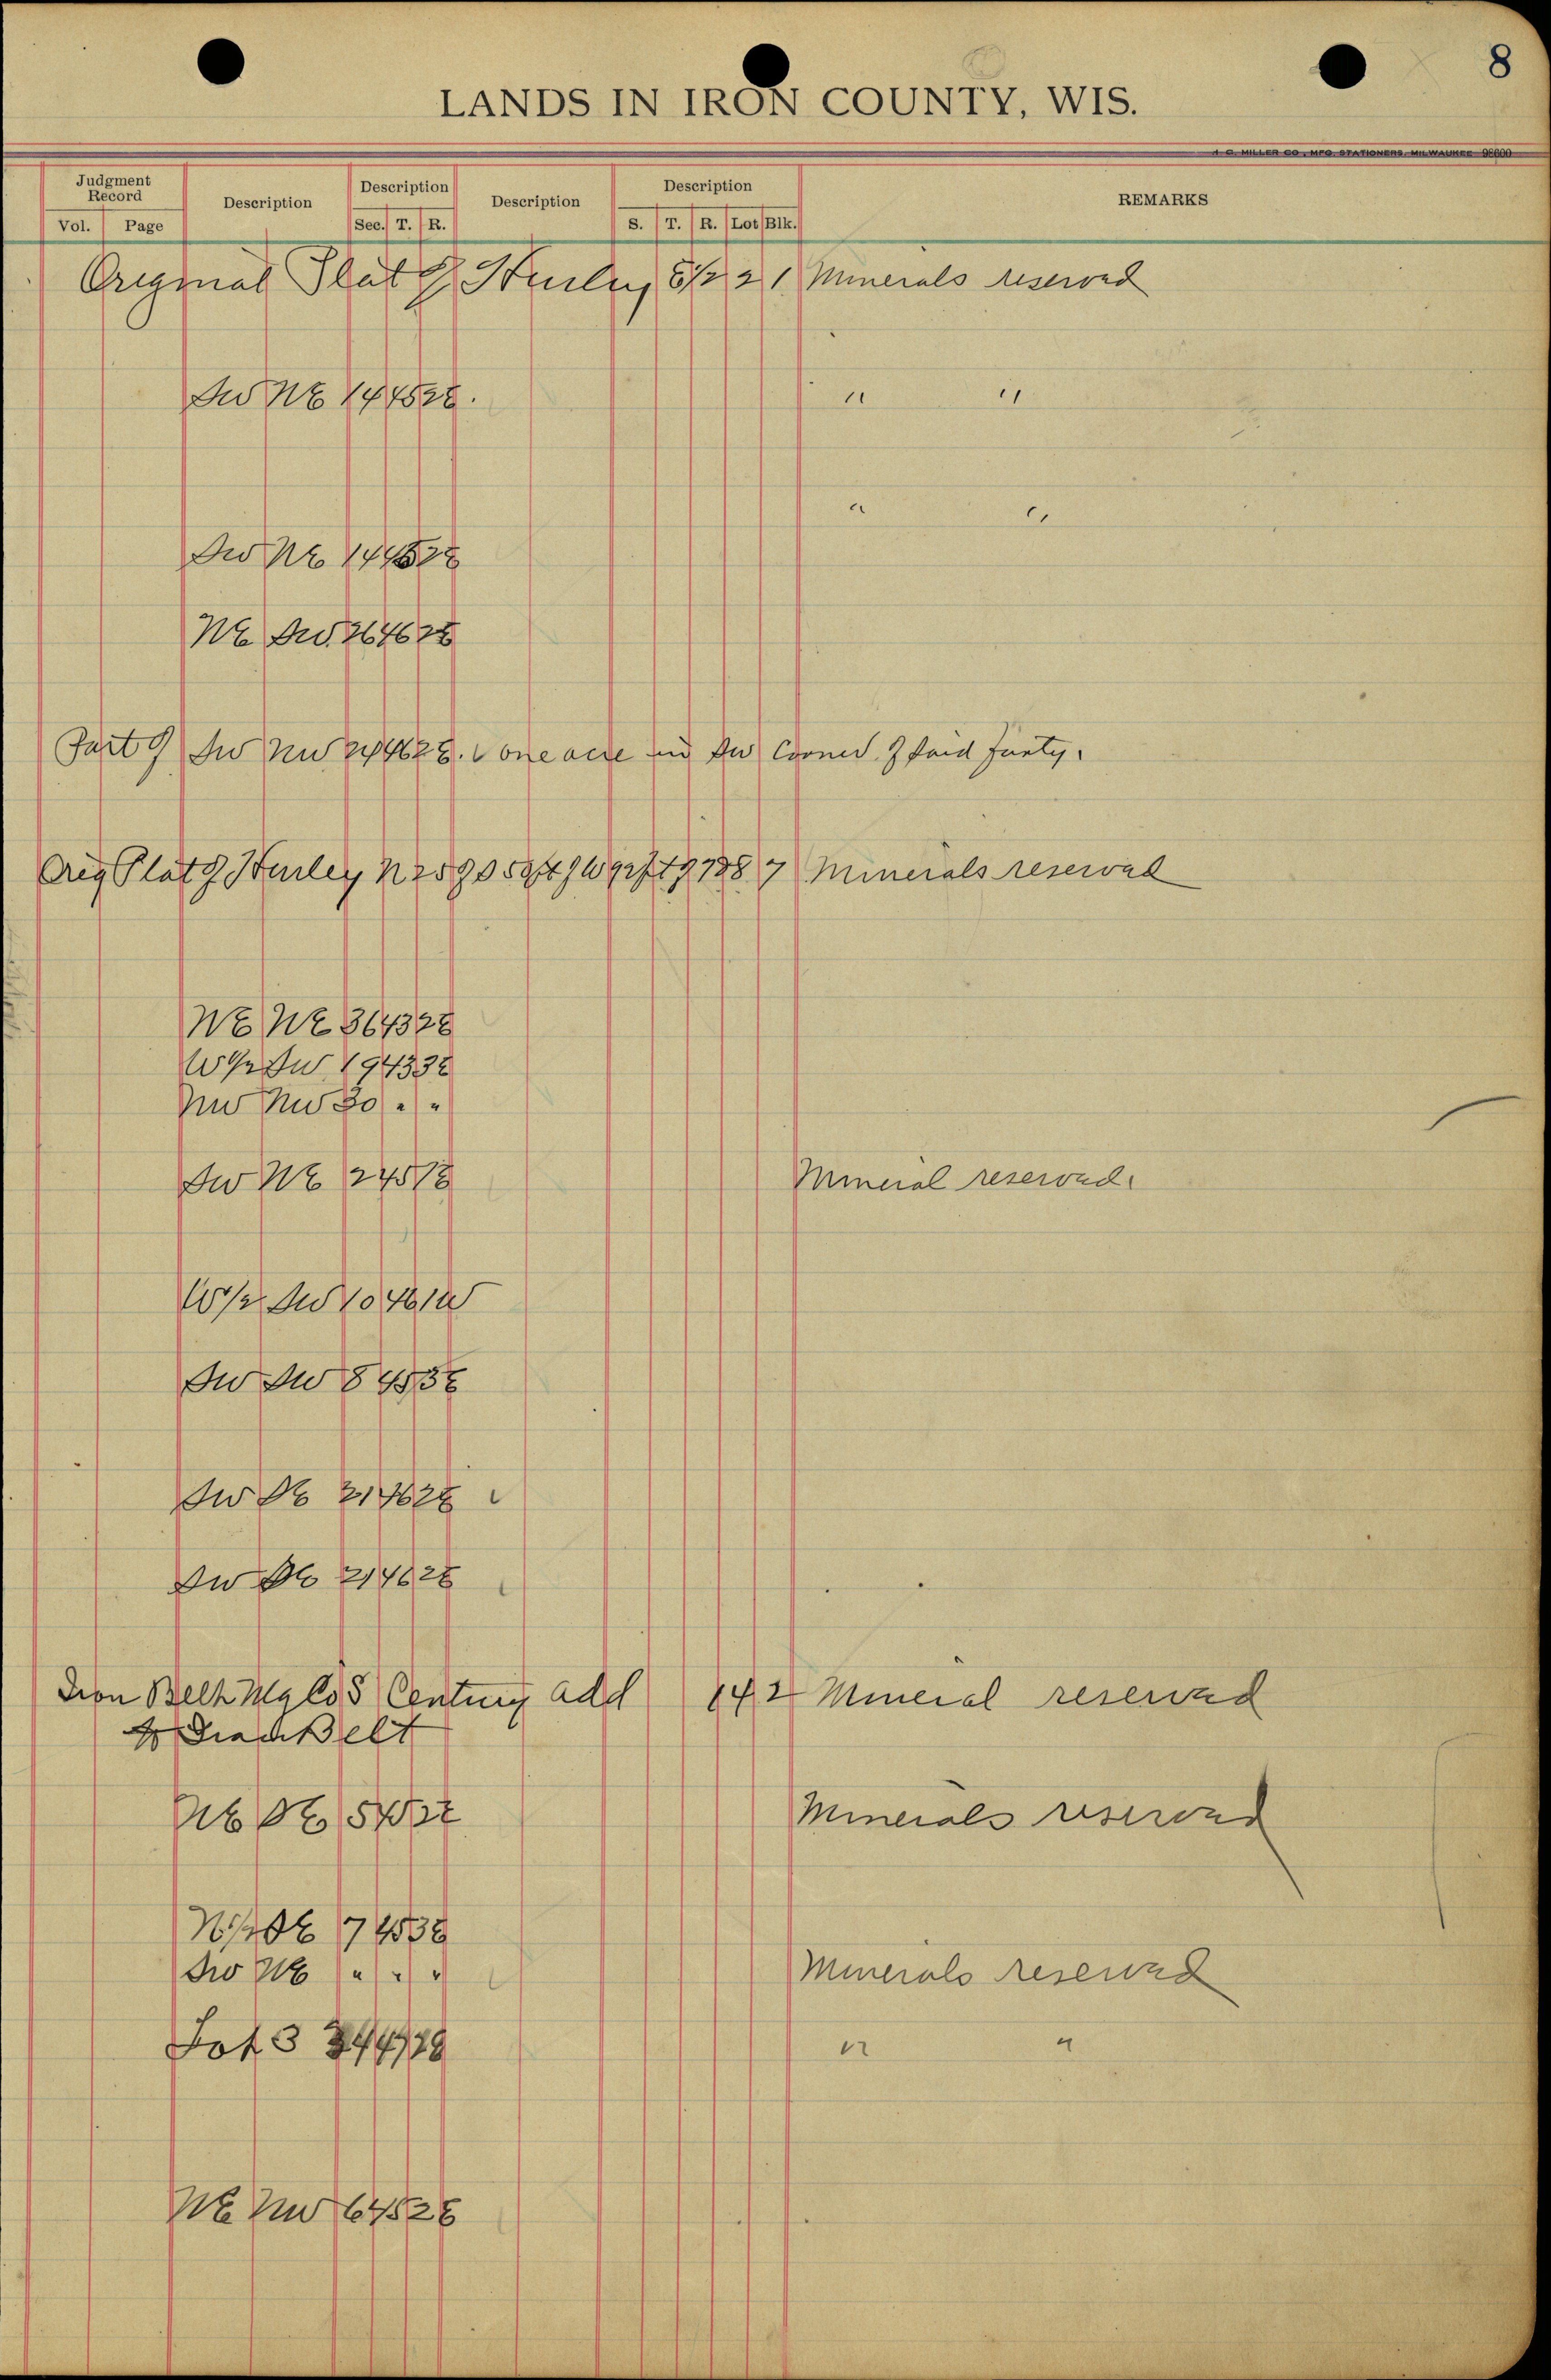 8
LANDS IN IRON COUNTY, WIS.
H. C. MILLER CO., MFG. STATIONERS, MILWAUKEE 98600
Judgment Record Description Description Description Description REMARKS
Vol. Page Sec. T. R. S. T. R. Lot Blk.
Original Plat of Hurley S1/2 2 1 Minerals reserved
SW NE 14 45 2E. " "
" "
SW NE 14 45 2E
NE SW 26 46 2E
Part of SW NW 24 46 2E. one acre in SW Corner of said forty.
Orig Plat of Hurley N 25 ft of 7 Minerals reserved
NE NE 36 43 2E
W1/2 SW 19 43 3E
NW NW 30 " "
SW NE 2 45 1E Mineral reserved.
W1/2 SW 10 46 1W
SW SW 8 45 3E
SW SE 21 46 2E
SW SE 21 46 2E
Iron Belt Century Add 14 2 Mineral reserved
to Iron Belt
NE SE 5 45 2E Minerals reserved
N1/2 SE 17 45 3E
SW NE " " " Minerals reserved
Lot 3 " "
NE NW 6 45 2E